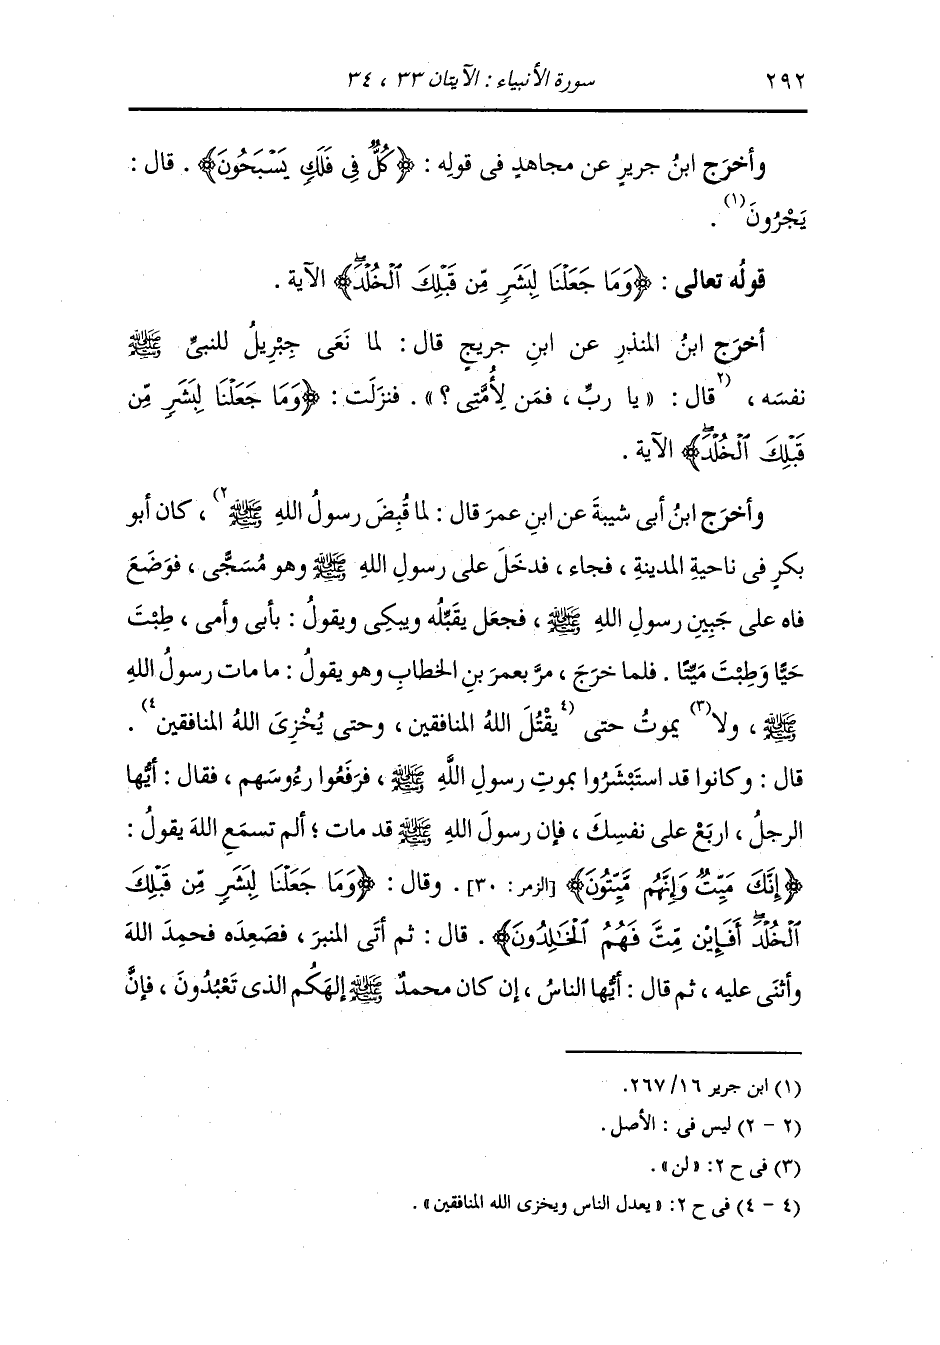 ٢٩٢ سورة الأنبياء : الآيتان ٣٣ ، ٣٤
وأخرَج ابنُ جريرٍ عن مجاهدٍ فى قولِه : ﴿كُلٌّ فِى فَلَكٍ يَسْبَحُونَ﴾ . قال :
يَجْرُونَ(١) .
قولُه تعالى : ﴿وَمَا جَعَلْنَا لِبَشَرٍ مِّن قَبْلِكَ ٱلْخُلْدَۖ﴾ الآية .
أخرَج ابنُ المنذرِ عن ابنِ جريجٍ قال : لما نَعَى جِبْرِيلُ للنبىِّ ﷺ
نفسَه ، (٢قال : « يا ربِّ ، فمَن لِأُمَّتِى ؟ » . فنزَلَت : ﴿وَمَا جَعَلْنَا لِبَشَرٍ مِّن
قَبْلِكَ ٱلْخُلْدَۖ﴾ الآية .
وأخرَج ابنُ أبى شيبةَ عن ابنِ عمرَ قال : لما قُبِضَ رسولُ اللهِ ﷺ٢) ، كان أبو
بكرٍ فى ناحيةِ المدينةِ ، فجاء ، فدخَلَ على رسولِ اللهِ ﷺ وهو مُسَجًّى ، فوَضَعَ
فاه على جَبِينِ رسولِ اللهِ ﷺ ، فجعَل يقبِّلُه ويبكِى ويقولُ : بأبى وأمى ، طِبْتَ
حَيًّا وَطِبْتَ مَيِّتًا . فلما خرَجَ ، مرَّ بعمرَ بنِ الخطابِ وهو يقولُ : ما مات رسولُ اللهِ
ﷺ ، ولا(٣) يموتُ حتى (٤يقْتُلَ اللهُ المنافقين ، وحتى يُخْزِىَ اللهُ المنافقين٤) .
قال : وكانوا قد استَبْشَرُوا بموتِ رسولِ اللَّهِ ﷺ ، فرَفَعُوا رءُوسَهم ، فقال : أيُّها
الرجلُ ، اربَعْ على نفسِكَ ، فإن رسولَ اللهِ ﷺ قد مات ؛ ألم تسمَعِ اللهَ يقولُ :
﴿إِنَّكَ مَيِّتٌ وَإِنَّهُم مَّيِّتُونَ﴾ [الزمر: ٣٠] . وقال : ﴿وَمَا جَعَلْنَا لِبَشَرٍ مِّن قَبْلِكَ
ٱلْخُلْدَۖ أَفَإِي۟ن مِّتَّ فَهُمُ ٱلْخَـٰلِدُونَ﴾ . قال : ثم أتَى المنبرَ ، فصَعِدَه فحمِدَ اللهَ
وأثنَى عليه ، ثم قال : أيُّها الناسُ ، إن كان محمدٌ ﷺ إلهَكُم الذى تَعْبُدُونَ ، فإنَّ
(١) ابن جرير ١٦/ ٢٦٧.
(٢ - ٢) ليس فى : الأصل .
(٣) فى ح ٢: « لن » .
(٤ - ٤) فى ح ٢: « يعدل الناس ويخزى الله المنافقين » .